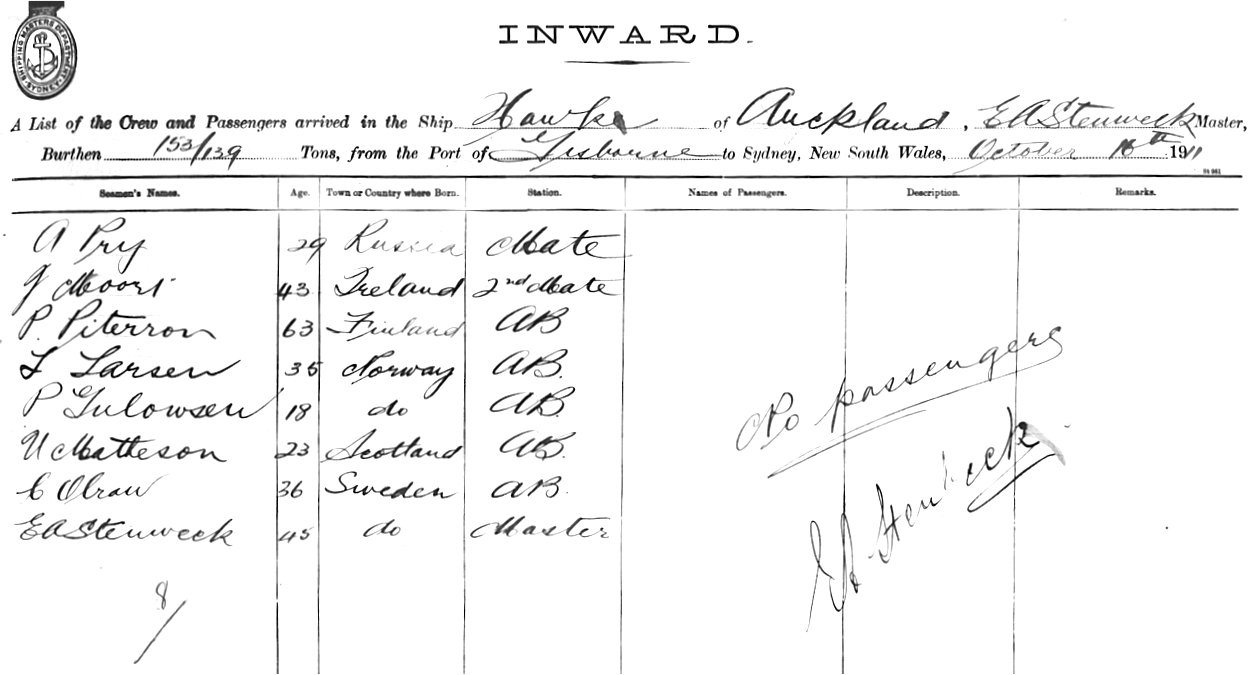 SHIPPING MASTERS DEPARTMENT SYDNEY
INWARD.
A List of the Crew and Passengers arrived in the Ship Hawke of Auckland, EA Stenweck Master,
Burthen 153/139 Tons, from the Port of Gisborne to Sydney, New South Wales, October 16th 1911
Seamen's Names. Age. Town or Country where Born. Station. Names of Passengers. Description. Remarks.
A Pry 29 Russia Mate
J Moore 43 Ireland 2nd Mate
P. Piterron 63 Finland AB
L Larsen 35 Norway AB.
P Gulowsen 18 do AB
N Matheson 23 Scotland AB.
C 36 Sweden AB.
EA Stenweck 45 do Master
No passengers
EA Stenweck
8/